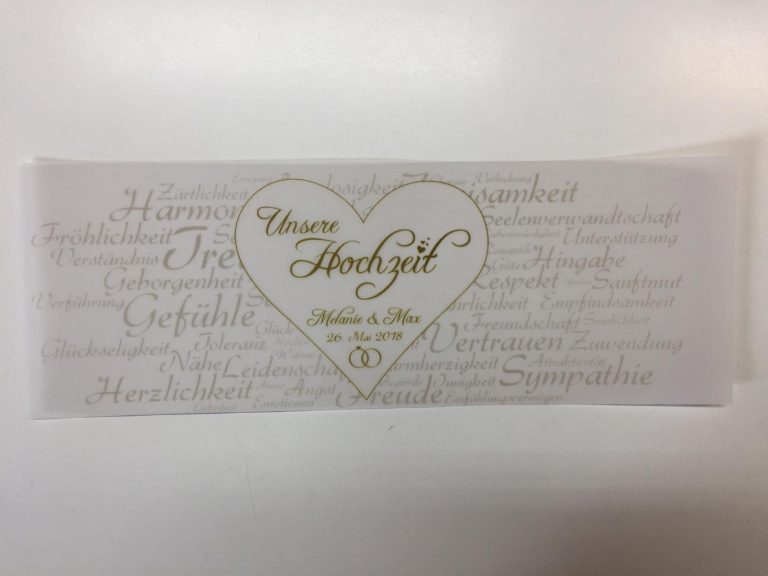 Unsere
Hochzeit
Melanie & Max
26. Mai 2018
Zärtlichkeit
Verlockung
Harmon
samkeit
Seelenverwandtschaft
Fröhlichkeit
Unterstützung
Verständnis
Tre
Romantik
Güte
Hingabe
Geborgenheit
Respekt
Sanftmut
Verführung
hrlichkeit
Empfindsamkeit
Gefühle
Glück
Freundschaft
Sinnlichkeit
Glückseligkeit
Toleranz
Vertrauen
Zuwendung
Nähe
Wärme
Leidenscha
rmherzigkeit
Attraktivität
Herzlichkeit
Angst
Begierde
Innigkeit
Sympathie
Emotionen
Freude
Einfühlungsvermögen